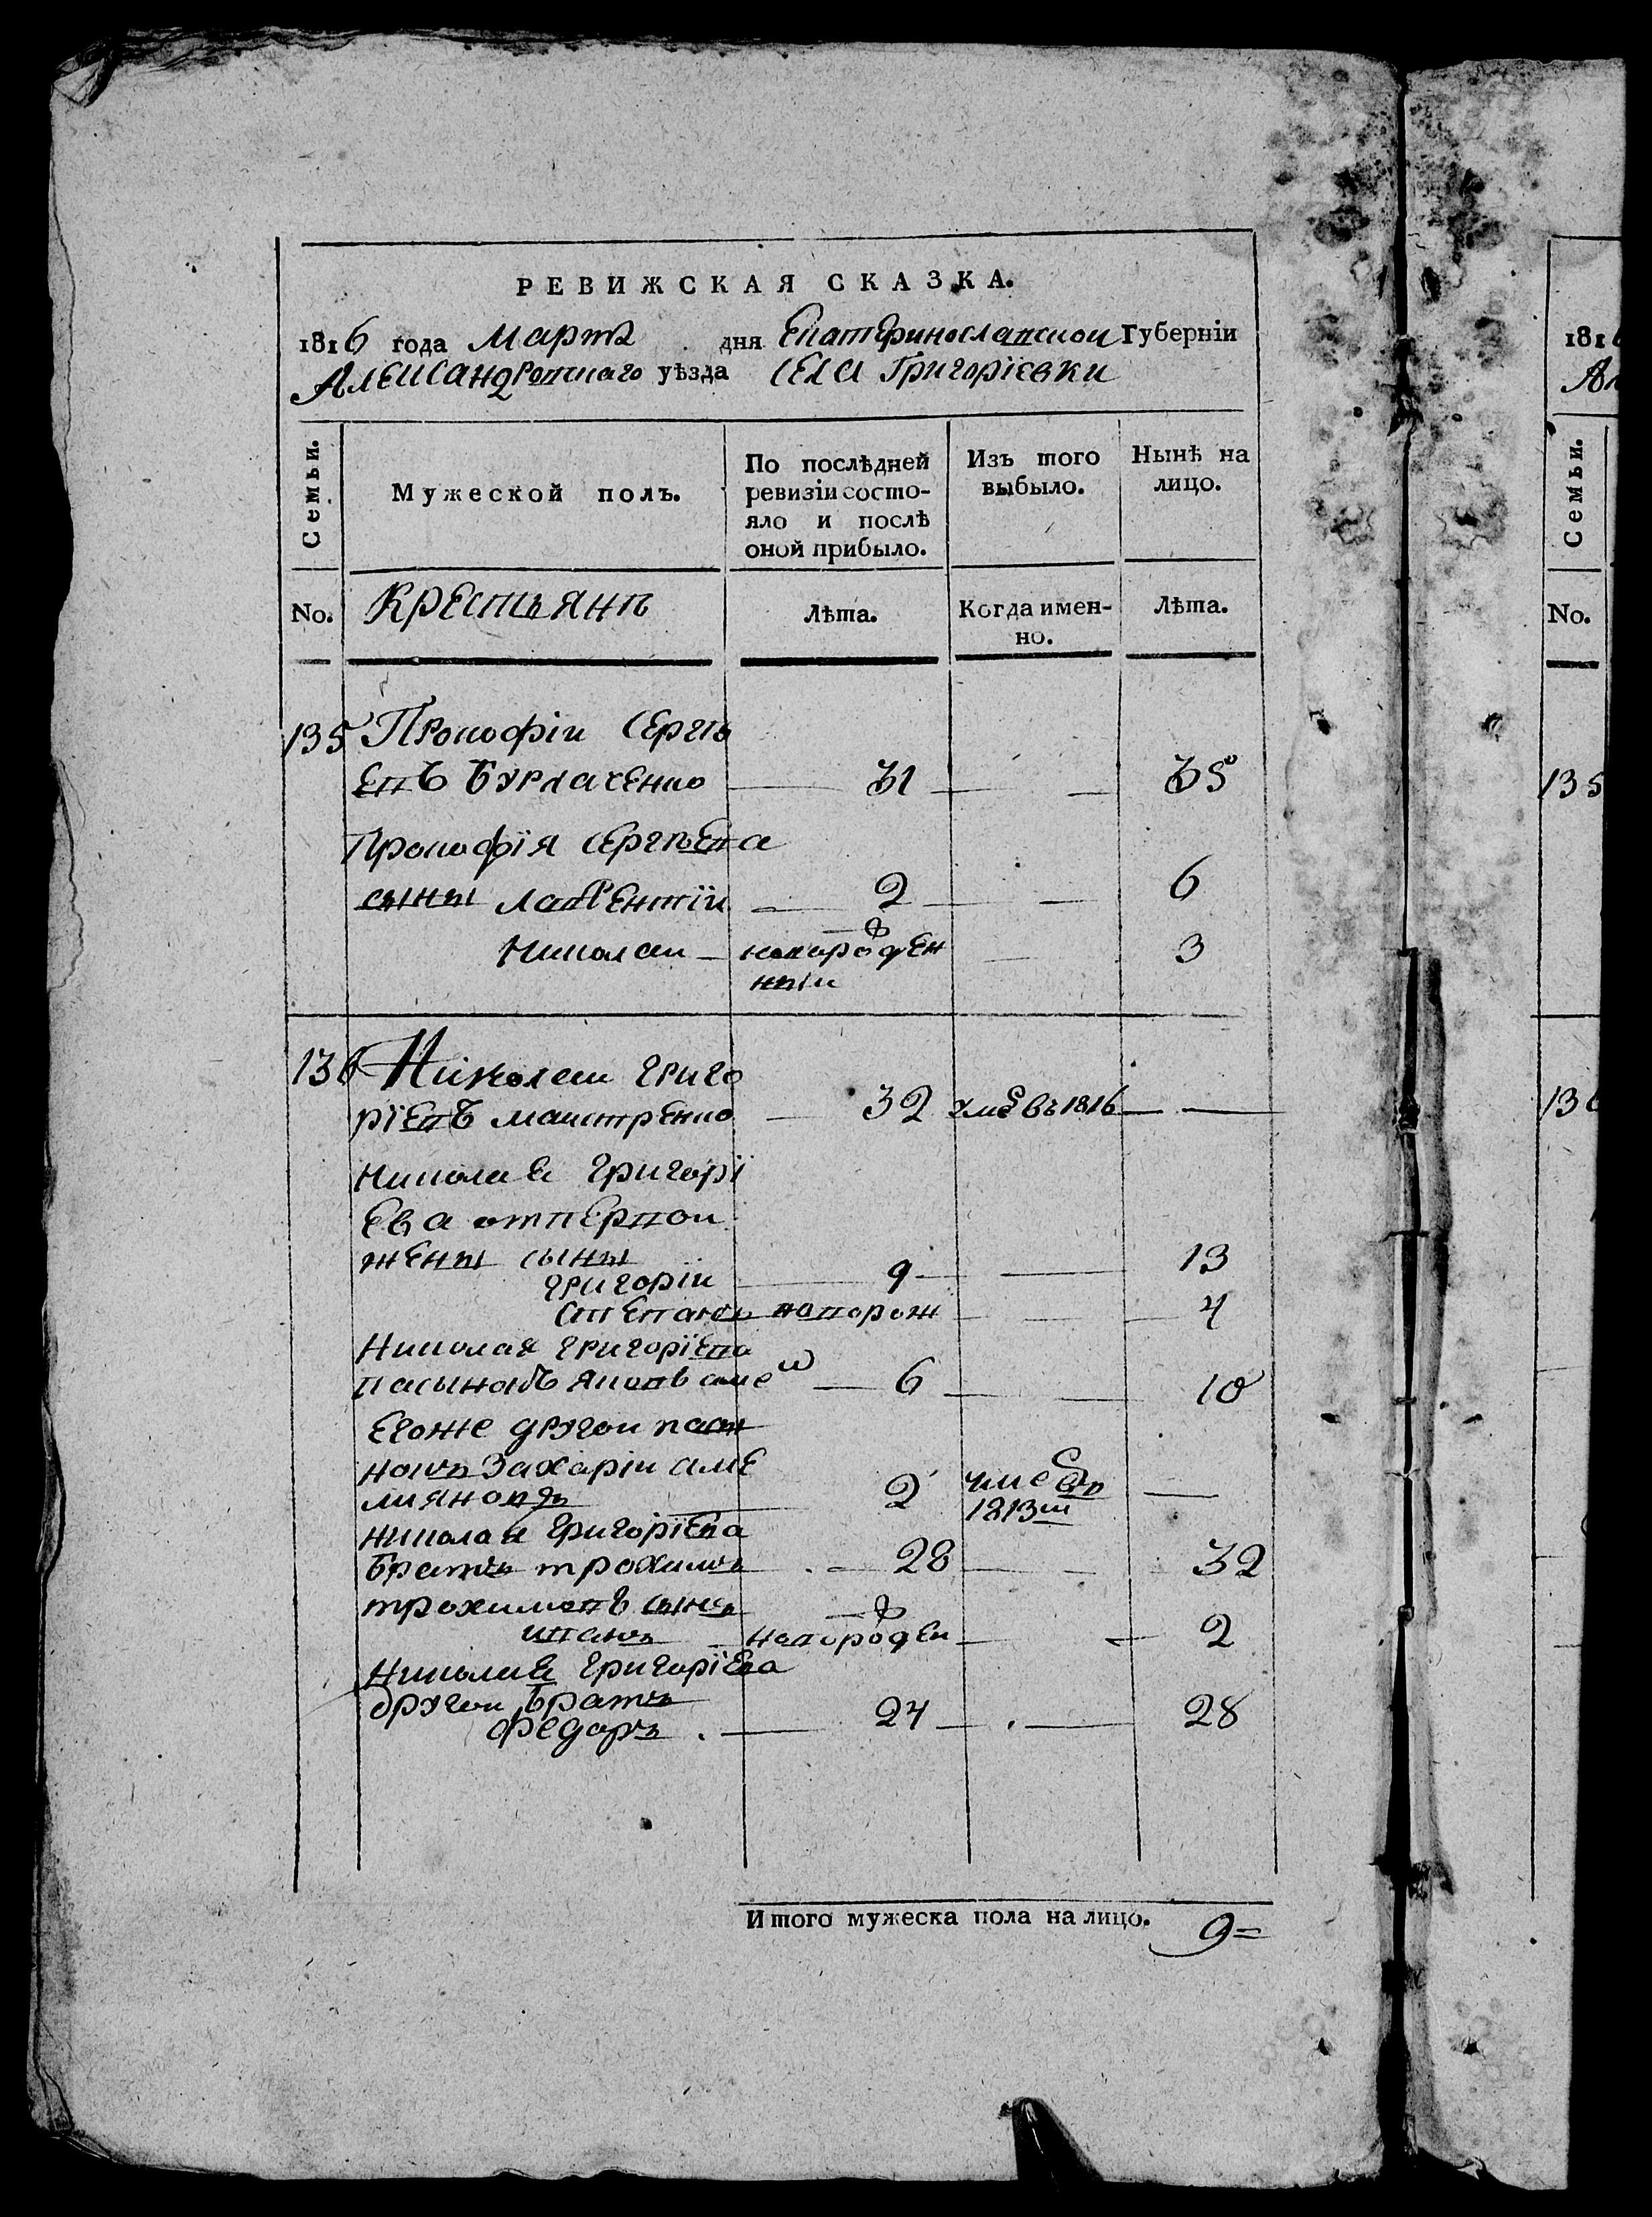 РЕВИЖСКАЯ СКАЗКА.
1816 года Марта дня Екатеринославской Губерніи
Александровскаго уѣзда села Григорієвки
Семьи.
Мужеской полъ.
По послѣдней
ревизіи состо-
яло и послѣ
оной прибыло.
Изъ того
выбыло.
Нынѣ на
лицо.
No.
Крестьянъ
Лѣта.
Когда имен-
но.
Лѣта.
135 Прокофіи Сергѣ
евъ Бурлаченко 31 35
Прокофїя Сергѣева
сыны Лаврентїи 2 6
Николаи новорожден 3
ныи
136 Николаи Григо
рїевъ маистренко 32 умре въ 1816
Николая Григорї
ева отпервои
жены сыны
григоріи 9 13
Степанъ новорож 4
Николая григорїева
пасынокъ яковъ оме 6 10
Егоже другои пасы
нокъ Захаріи оме
лияновъ 2 умре въ
1813м
Николая Григорїева
братъ трохимъ 28 32
трохимовъ сынъ
иванъ новорожден 2
Николая григорїева
другои братъ
Федоръ 24 28
Итого мужеска пола на лицо. 9=
1816
Ал
Семьи.
No.
135
136